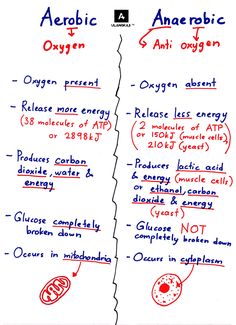 Aerobic
Oxygen
- Oxygen present
- Release more energy
(38 molecules of ATP)
or 2898kJ
- Produces carbon
dioxide, water &
energy
- Glucose completely
broken down
- Occurs in mitochondria
A
Anaerobic
Anti oxygen
- Oxygen absent
- Release less energy
(2 molecules of ATP
or 150kJ (muscle cells)
210kJ (yeast)
- Produces lactic acid
& energy (muscle cells)
or ethanol, carbon
dioxide & energy
(yeast)
- Glucose NOT
completely broken down
- Occurs in cytoplasm